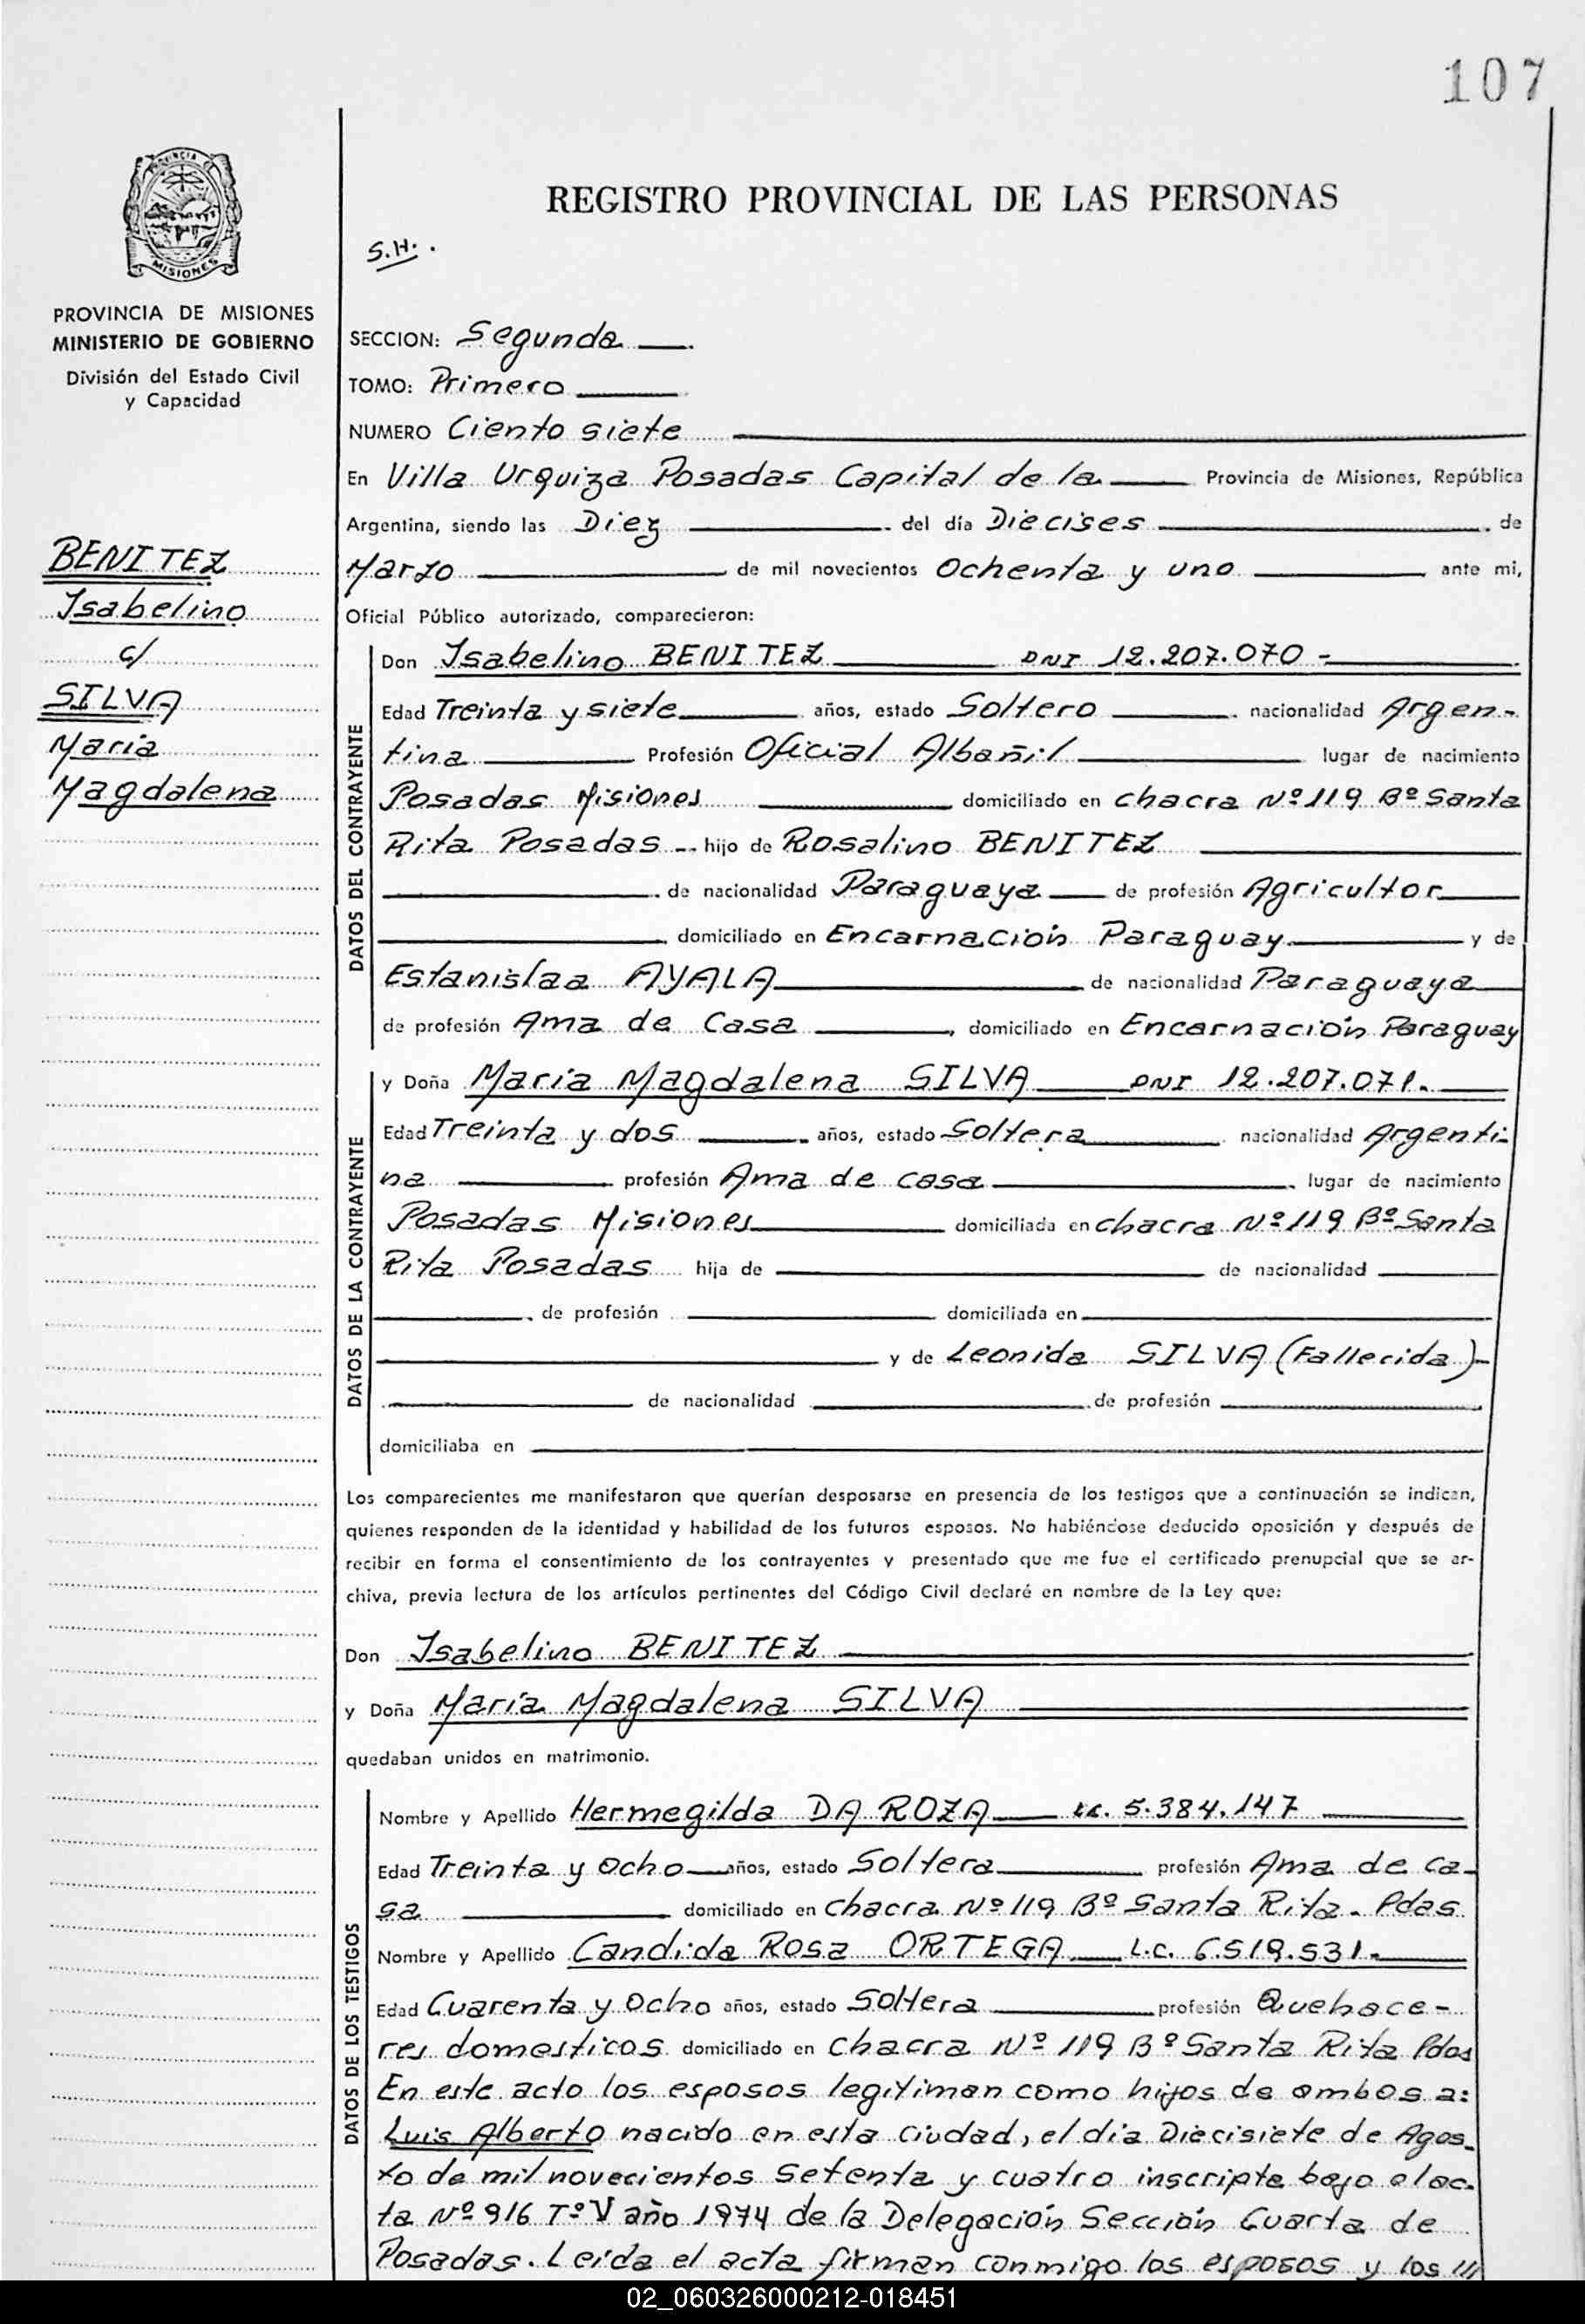 107
PROVINCIA DE
MISIONES
REGISTRO PROVINCIAL DE LAS PERSONAS
S.H..
PROVINCIA DE MISIONES
MINISTERIO DE GOBIERNO
División del Estado Civil
y Capacidad
BENITEZ
Isabelino
c/
SILVA
Maria
Magdalena
SECCION: Segunda
TOMO: Primero
NUMERO Ciento siete
En Villa Urquiza Posadas Capital de la Provincia de Misiones, República
Argentina, siendo las Diez del día Diecises de
Marzo de mil novecientos Ochenta y uno ante mi,
Oficial Público autorizado, comparecieron:
DATOS DEL CONTRAYENTE
Don Isabelino BENITEZ DNI 12.207.070 -
Edad Treinta y siete años, estado Soltero nacionalidad Argen-
tina Profesión Oficial Albañil lugar de nacimiento
Posadas Misiones domiciliado en chacra Nº 119 Bº Santa
Rita Posadas -- hijo de Rosalino BENITEZ
de nacionalidad Paraguaya de profesión Agricultor
domiciliado en Encarnación Paraguay y de
Estanislaa AYALA de nacionalidad Paraguaya
de profesión Ama de Casa, domiciliado en Encarnación Paraguay
DATOS DE LA CONTRAYENTE
y Doña Maria Magdalena SILVA DNI 12.207.071.
Edad Treinta y dos años, estado Soltera nacionalidad Argenti-
na profesión Ama de casa lugar de nacimiento
Posadas Misiones domiciliada en chacra Nº 119 Bº Santa
Rita Posadas hija de de nacionalidad
de profesión domiciliada en
y de Leonida SILVA (Fallecida)-
de nacionalidad de profesión
domiciliaba en
Los comparecientes me manifestaron que querían desposarse en presencia de los testigos que a continuación se indican,
quienes responden de la identidad y habilidad de los futuros esposos. No habiéndose deducido oposición y después de
recibir en forma el consentimiento de los contrayentes y presentado que me fue el certificado prenupcial que se ar-
chiva, previa lectura de los artículos pertinentes del Código Civil declaré en nombre de la Ley que:
Don Isabelino BENITEZ
y Doña María Magdalena SILVA
quedaban unidos en matrimonio.
DATOS DE LOS TESTIGOS
Nombre y Apellido Hermegilda DA ROZA L.C. 5.384.147
Edad Treinta y Ocho años, estado Soltera profesión Ama de Ca-
sa domiciliado en chacra Nº 119 Bº Santa Rita. Pdas
Nombre y Apellido Candida Rosa ORTEGA L.C. 6.519.531.
Edad Cuarenta y Ocho años, estado Soltera profesión Quehace-
res domesticos domiciliado en chacra Nº 119 Bº Santa Rita Pdas
En este acto los esposos legitiman como hijos de ambos a:
Luis Alberto nacido en esta ciudad, el día Diecisiete de Agos-
to de mil novecientos Setenta y cuatro inscripta bajo el ac-
ta Nº 916 Tº V año 1974 de la Delegación Sección Cuarta de
Posadas. Leída el acta firman conmigo los esposos y los
02_060326000212-018451